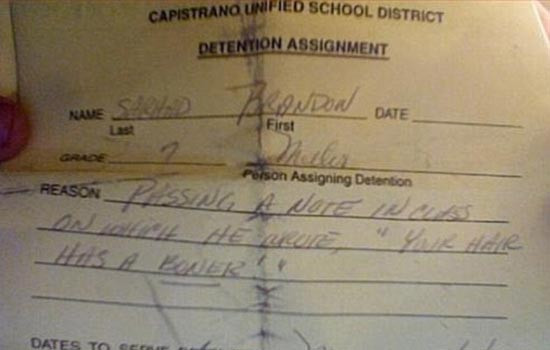 CAPISTRANO UNIFIED SCHOOL DISTRICT
DETENTION ASSIGNMENT
NAME SARHAD BRANDON DATE
Last First
GRADE 7
Person Assigning Detention
REASON PASSING A NOTE IN CLASS
ON WHICH HE WROTE, "YOUR HAIR
HAS A BONER"
DATES TO SERVE